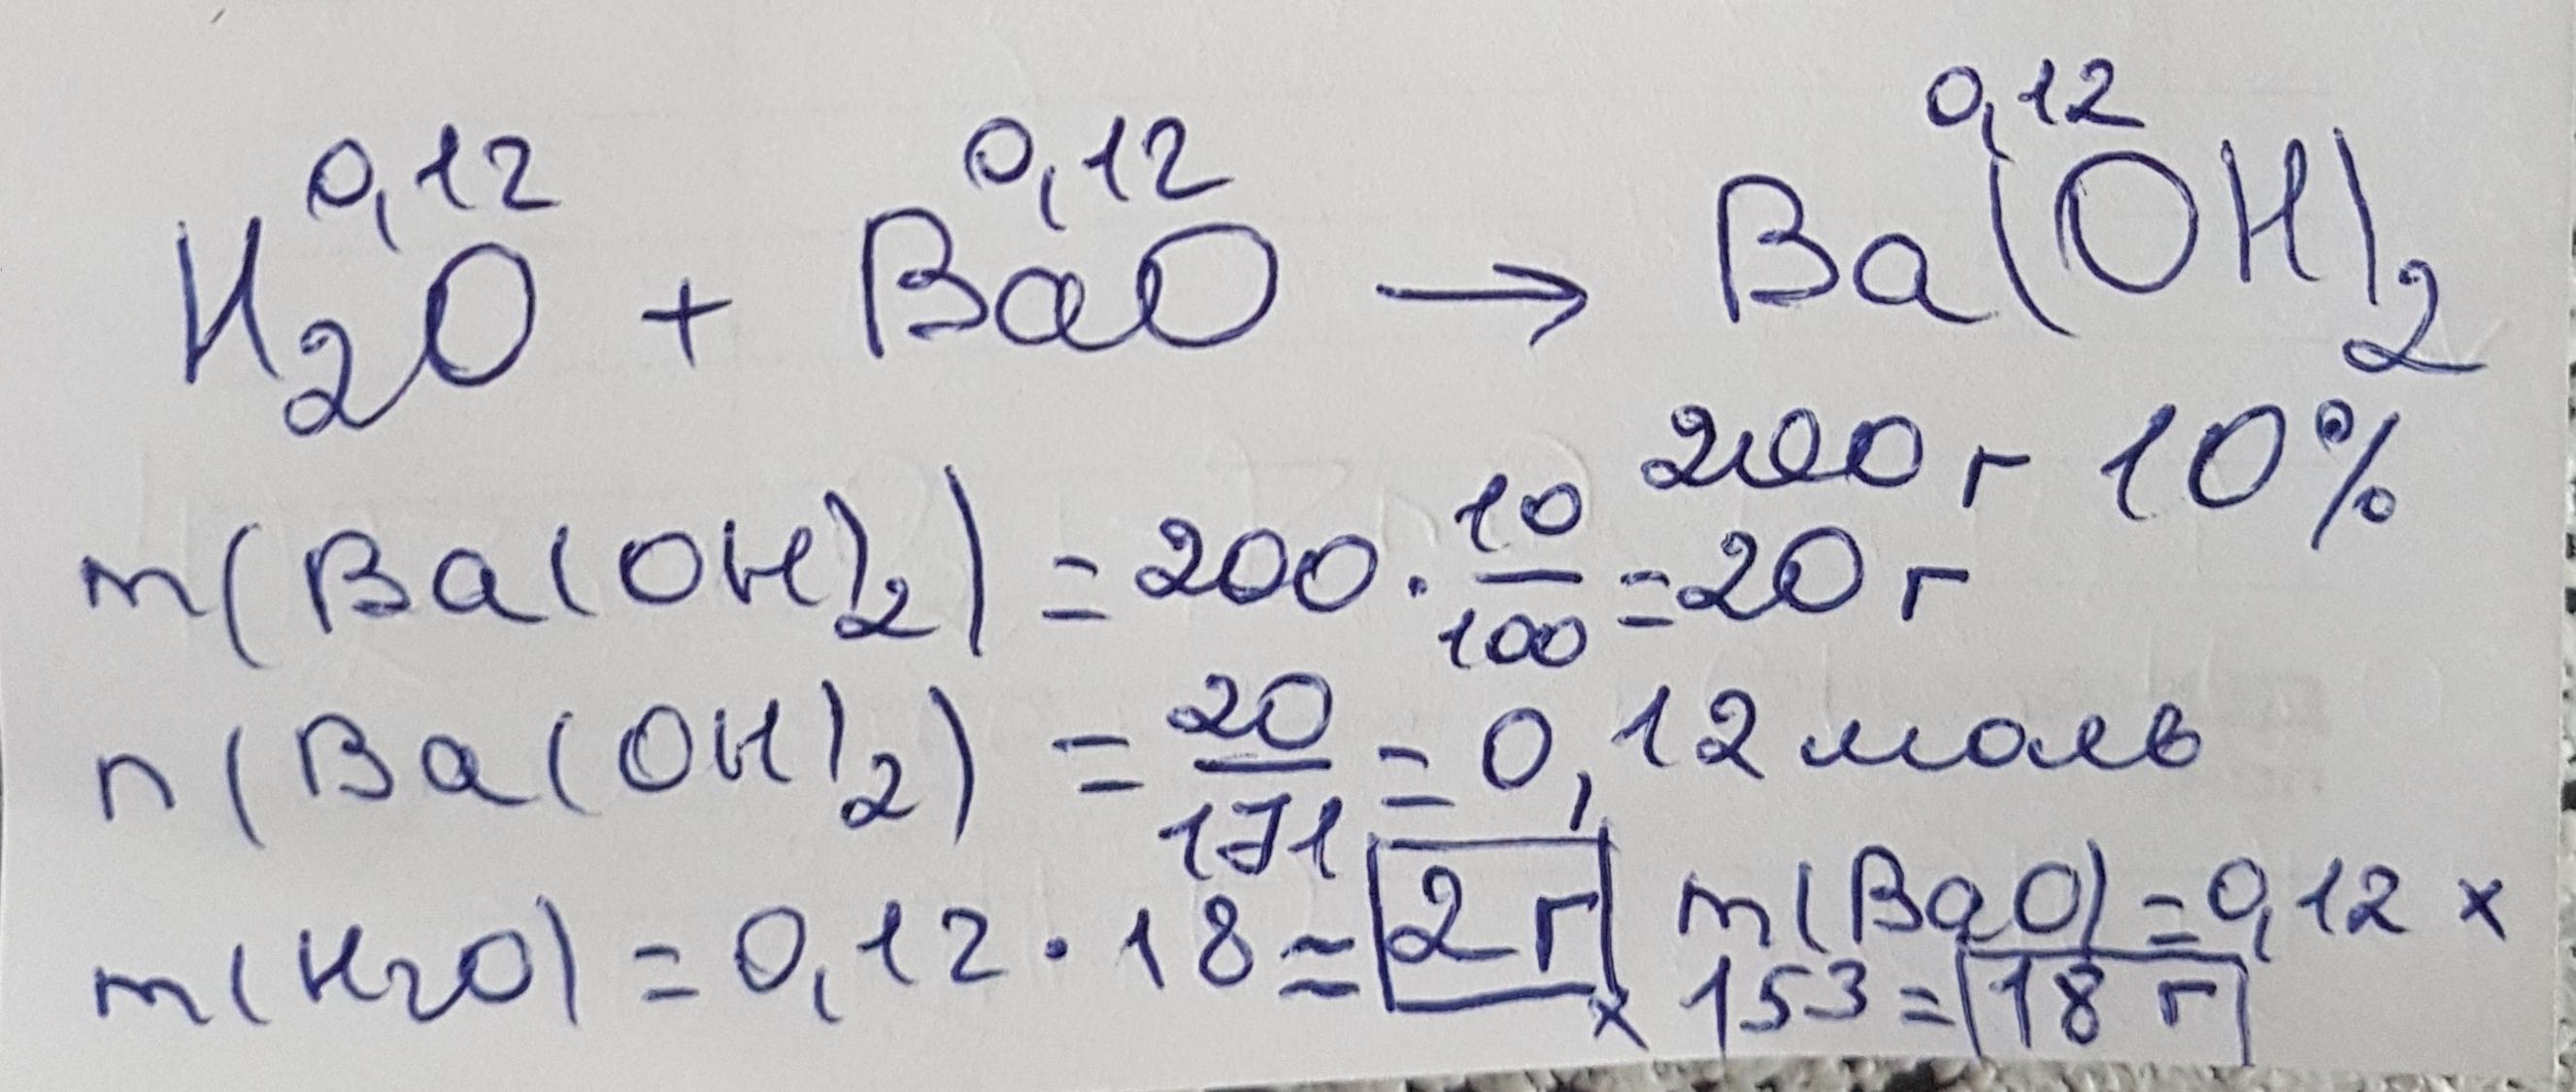 0,12 0,12 0,12
H₂O + BaO → Ba(OH)₂
200 г 10%
m(Ba(OH)₂) = 200 · 10/100 = 20 г
n(Ba(OH)₂) = 20/171 = 0,12 моль
m(H₂O) = 0,12 · 18 ≈ 2 г
m(BaO) = 0,12 ×
× 153 = 18 г